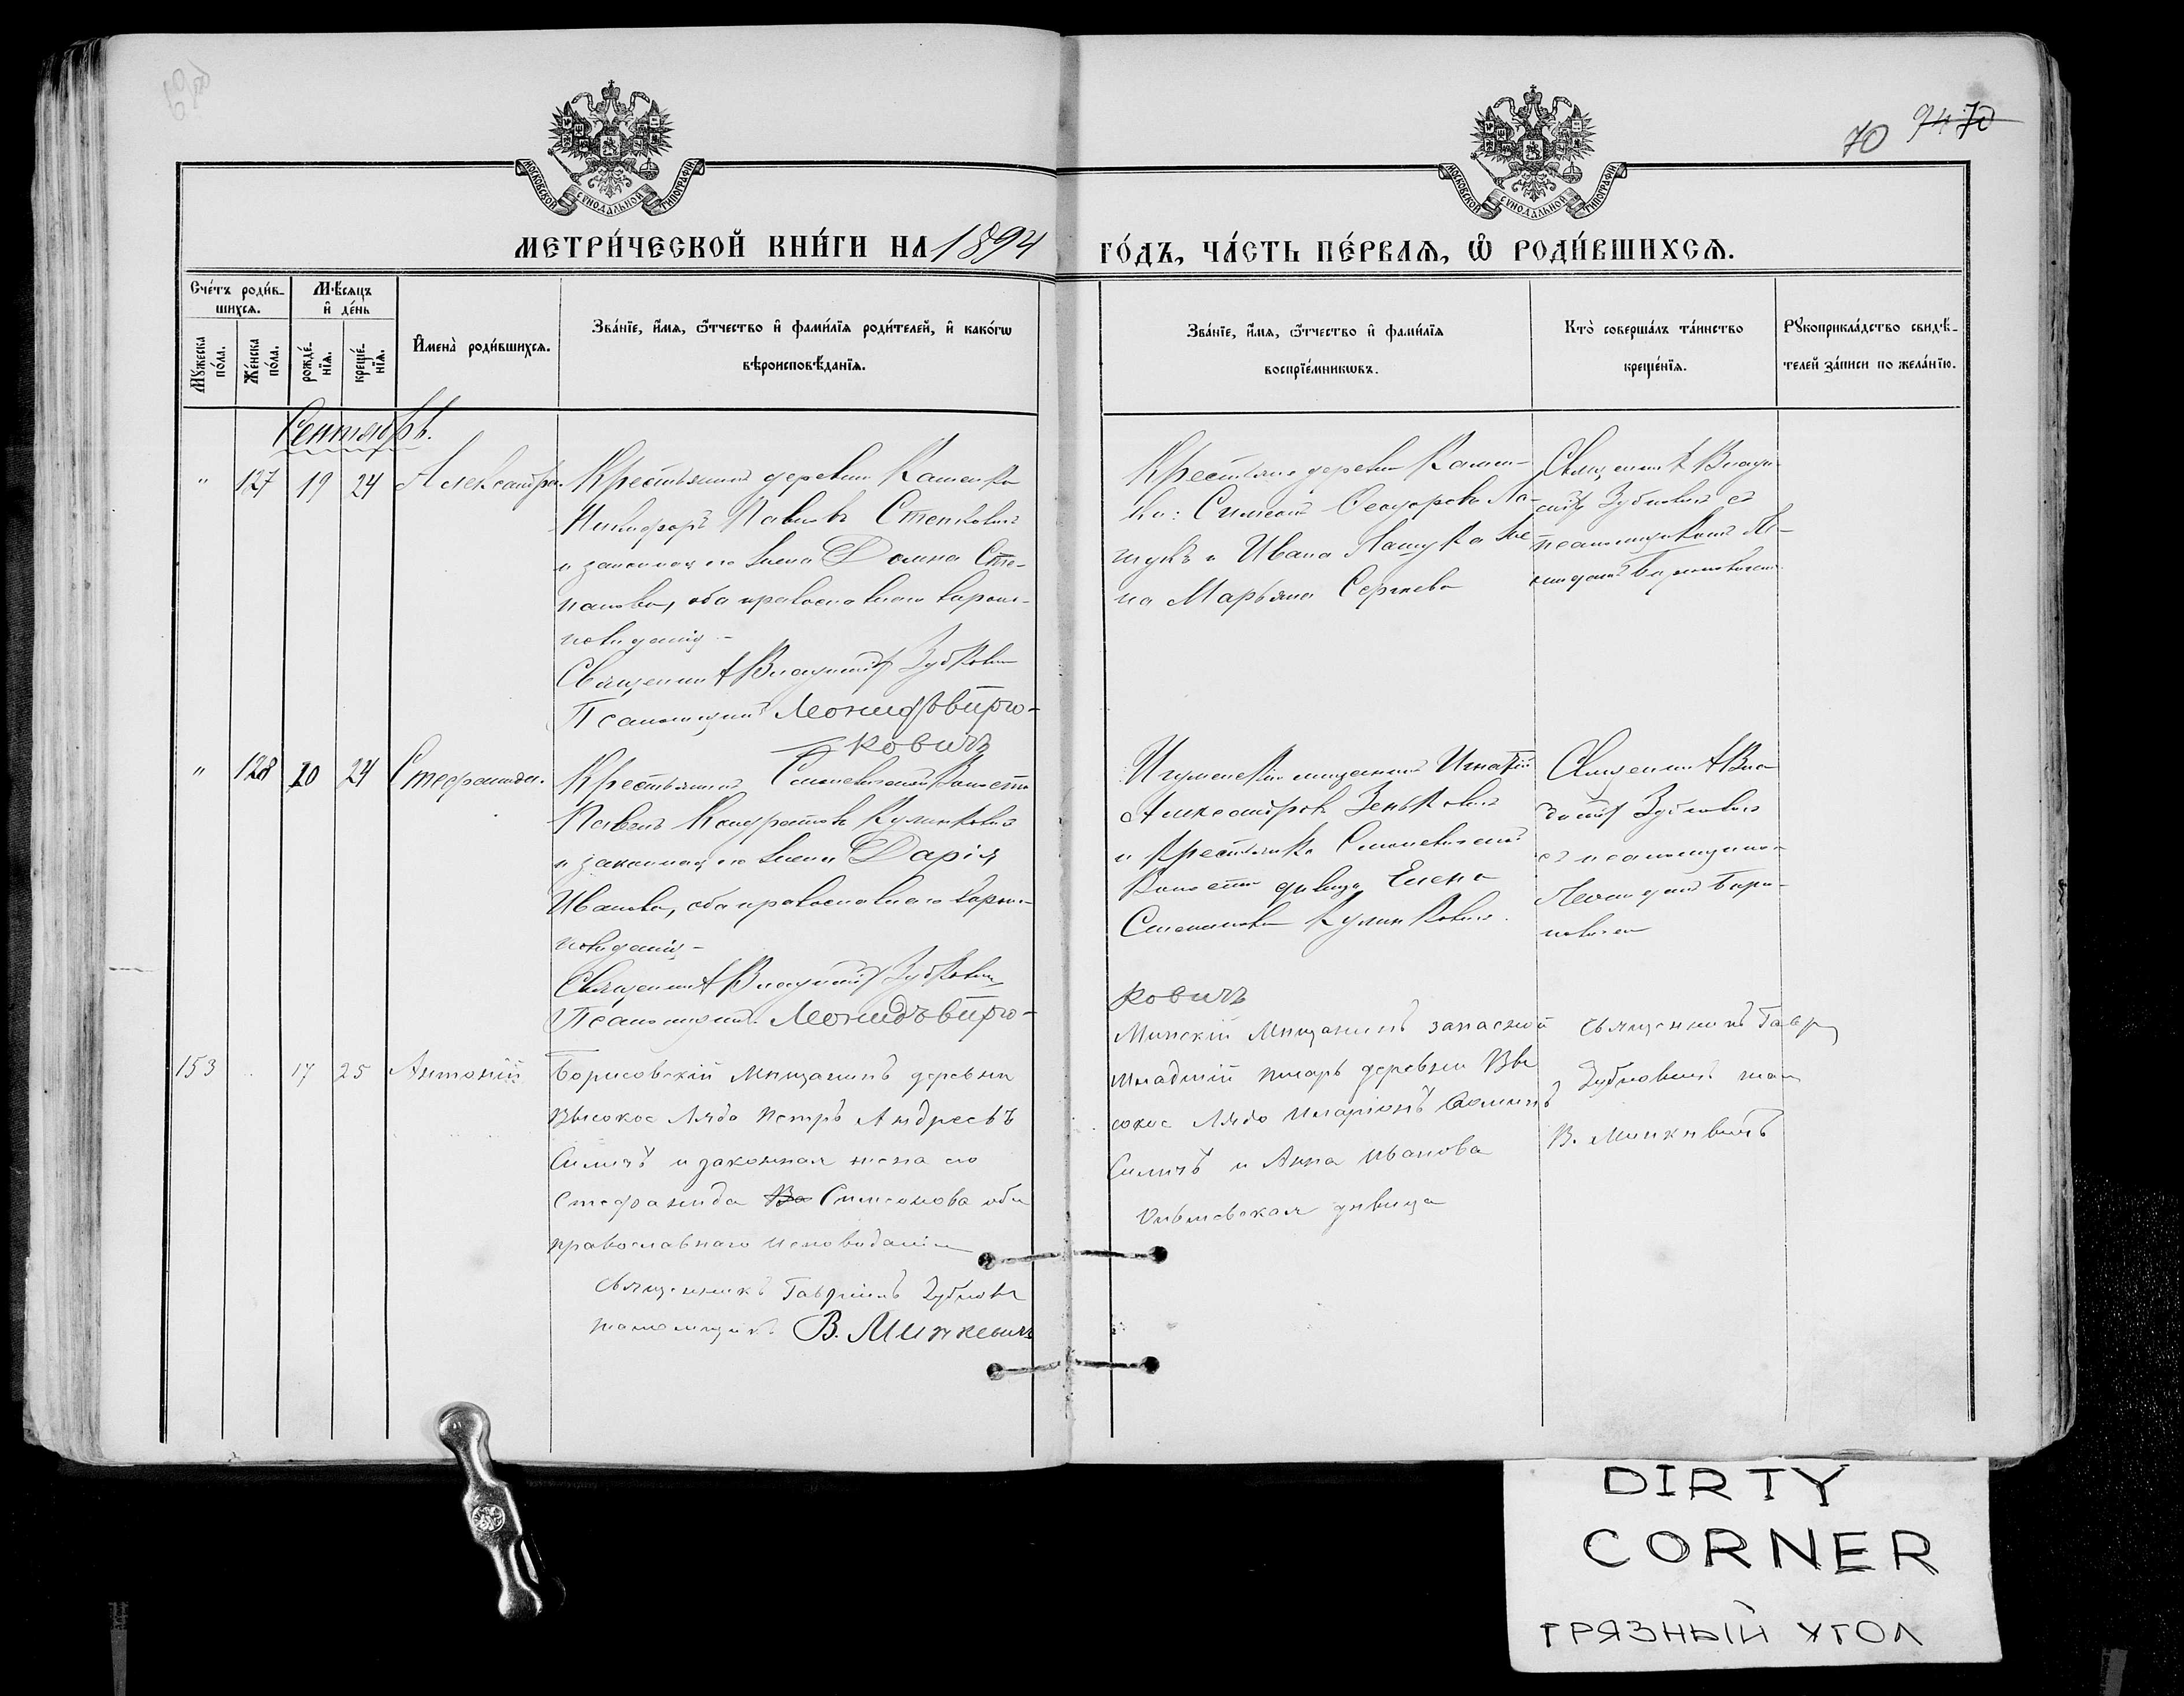 70 94 70
МОСКОВСКОЙ СѴНОДАЛЬНОЙ ТИПОГРАФІИ
МОСКОВСКОЙ СѴНОДАЛЬНОЙ ТИПОГРАФІИ
МЕТРИ́ЧЕСКОЙ КНИ́ГИ НА 1894 ГО́ДЪ, ЧА́СТЬ ПЕ́РВАѦ, Ѿ РОДИ́ВШИХСѦ.
Сче́тъ роди́вшихсѧ.
Мꙋ́жеска по́ла.
Же́нска по́ла.
Мѣ́сѧцъ и҆ де́нь
рожде́нїѧ.
креще́нїѧ.
И҆мена̀ роди́вшихсѧ.
Зва́нїе, и҆́мѧ, ѻ҆́тчество и҆ фами́лїѧ роди́телей, и҆ како́гѡ
вѣроисповѣ́данїѧ.
Зва́нїе, и҆́мѧ, ѻ҆́тчество и҆ фами́лїѧ
воспрїе́мникѡвъ.
Кто̀ соверша́лъ та́инство
креще́нїѧ.
Рꙋкоприкла́дство свидѣ́-
телей за́писи по жела́нїю.
Сентябрь.
" 127 19 24 Александра.
Крестьянинъ деревни Каменка
Никифоръ Павловъ Степковичъ
и законная его жена Домна Сте-
панова, оба православнаго вѣроис-
повѣданія -
Священникъ Владиміръ Зубковичъ
Псаломщикъ Леонидъ Биро-
ковичъ
Крестьяне деревни Камен-
ки: Симеонъ Ла-
и Ивана Лащука же-
на Марьяна Сергеева
Священникъ Влади-
міръ Зубковичъ съ
псаломщикомъ Ле-
онидомъ
" 128 20 24 Стефанида.
Крестьянинъ Смолевичской волости
Павелъ Кондратовъ Кулинковичъ
и законная его жена Дарія
Иванова, оба православнаго вѣроис-
повѣданія -
Священникъ Владиміръ Зубковичъ
Псаломщикъ Леонидъ Биро-
ковичъ
Игуменскій мѣщанинъ Игнатій
Александровъ Зеньковичъ
и крестьянка Смолевичской
волости дѣвица Елена
Кулинковичъ.
Священникъ Вла-
диміръ Зубковичъ
съ псаломщико-
Леонидомъ Биро-
153 17 25 Антоній
Борисовскій мѣщанинъ деревни
Высокое Лядо Петръ Андреевъ
Силичъ и законная жена его
Стефанида Во Симеонова оба
православнаго исповѣданія
Священникъ Гавріилъ Зубкови
псаломщикъ В. Минкевичъ
Минскій мѣщанинъ запасной
младшій писарь деревни Вы
сокое Лядо Иларіонъ
Силичъ и Анна Иванова
дѣвица
Священникъ Гавр
Зубковичъ
В. Минкевичъ
DIRTY
CORNER
ГРЯЗНЫЙ УГОЛ